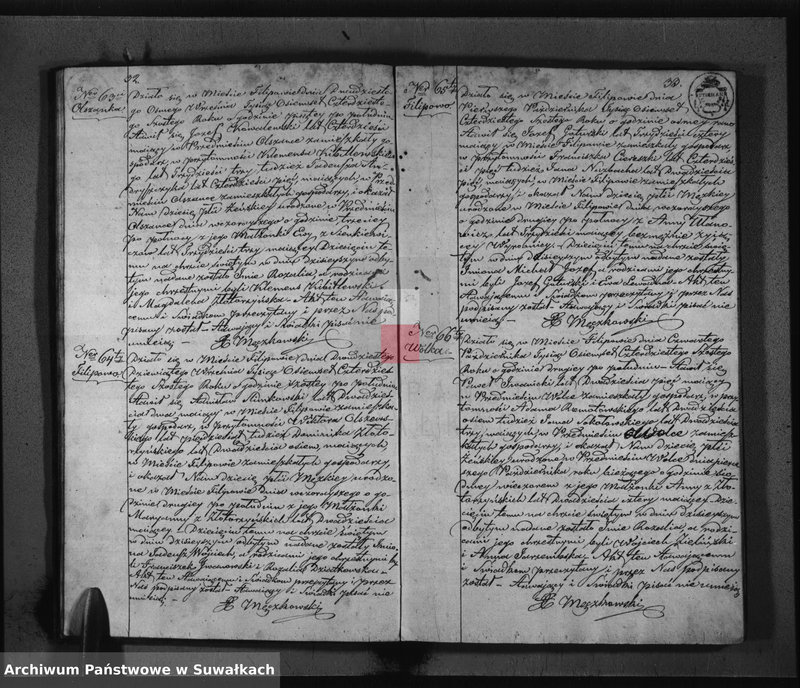 32.
Nro 63ci
Olszanka
Działo się w Mieście Filipowie Dnia Dwudziestego
Osmego Września Tysiąc Osiemset Czterdziestego
Szóstego Roku o godzinie piątey po południu
Stawił się Józef Chowaleski lat Czterdzieści
maiący w Przedmieściu Olszance zamieszkały go-
spodarz, w przytomności Klemensa
go lat Trzydzieści trzy tudzież Tadeusza
lat Czterdzieści pięć maiących, w Przed-
mieściu Olszance zamieszkałych gospodarzy, i okazał
Nam Dziecię płci Żeńskiey urodzone w Przedmieściu
Olszance dnia wczorayszego o godzinie trzeciey
po północy z jego Małżonki Ewy z
lat Trzydzieści trzy maiącey Dziecięciu te-
mu na chrzcie świętym w dniu dzisieyszym odby-
tym nadane zostało Imie Rozalia, a rodzicami
jego chrzestnymi byli Klemens
i Magdalena Akt ten Stawaią-
cemu i Świadkom przeczytany i przez Nas pod-
pisany został Stawaiący i Świadki pisać nie
umieią
X Męczkowski
Nro 64ty
Filipowo
Działo się w Mieście Filipowie Dnia Dwudziestego
Dziewiątego Września Tysiąc Osiemset Czterdzie-
stego Szóstego Roku o godzinie szóstey po południu
Stawił się Adam lat Dwadzieś-
cia dwa maiący w Mieście Filipowie zamieszka-
ły gospodarz, w przytomności Wiktora Olszews-
kiego lat pięćdziesiąt tudzież Dominika Złoto-
rzyńskiego lat Dwadzieścia osiem, maiących
w Mieście Filipowie zamieszkałych gospodarzy,
i okazał Nam Dziecię płci Męzkiey urodzo-
ne w Mieście Filipowie Dnia wczorayszego o go-
dzinie drugiey po południu z jego Małżonki
Maryanny z Złotorzyńskich lat Dwadzieścia
maiącey Dziecięciu temu na chrzcie świętym
w dniu dzisieyszym odbytym nadane zostały Imio-
na Tadeusz, Woyciech, a rodzicami jego chrzestnymi by-
li Franciszek Iwanowski i Rozalia
Akt ten Stawaiącemu i Świadkom przeczytany i przez
Nas podpisany został Stawaiący i Świadki pisać nie
umieią
X Męczkowski
33.
Nro 65ty
Filipowo
Działo się w Mieście Filipowie Dnia
Pierwszego Października Tysiąc Osiemset
Czterdziestego Szóstego Roku o godzinie osmey rano
Stawił się Józef lat Trzydzieści cztery
maiący w Mieście Filipowie zamieszkały gospodarz
w przytomności Franciszka lat Czterdzieści
pięć tudzież Jana lat Dwadzieścia
pięć maiących, w Mieście Filipowie zamieszkałych
gospodarzy, i okazał Nam Dziecię płci Męzkiey
urodzone w Mieście Filipowie dnia wczorayszego
o godzinie drugiey po północy z Anny Ulano-
wicz lat Trzydzieści maiącey bezmężnie żyią-
cey Wyrobnicy. Dziecięciu temu na chrzcie świę-
tym w dniu dzisieyszym odbytym nadane zostały
Imiona Michał Józef, a rodzicami jego chrzestny-
mi byli Józef i Ewa Akt ten
Stawaiącemu i Świadkom przeczytany i przez Nas
podpisany został Stawaiący i Świadki pisać nie
umieią
X Męczkowski
Nro 66ty
Wólka
Działo się w Mieście Filipowie Dnia Czwartego
Października Tysiąc Osiemset Czterdziestego Szóstego
Roku o godzinie drugiey po południu Stawił się
Paweł Iwanicki lat Dwadzieścia pięć maiący
w Przedmieściu Wólce zamieszkały gospodarz, w przy-
tomności Adama Romotowskiego lat Dwadzieścia
osiem tudzież Jana Sokołowskiego lat Dwadzieścia
trzy, maiących w Przedmieściu Wólce zamiesz-
kałych gospodarzy, i okazał Nam Dziecię płci
Żeńskiey urodzone w Przedmieściu Wólce Dnia pierw-
szego Października, roku bieżącego o godzinie Sió-
dmey wieczorem z jego Małżonki Anny z Zło-
torzyńskich lat Dwadzieścia cztery maiącey Dzie-
cięciu temu na chrzcie świętym w dniu dzisieyszym
odbytym nadane zostało Imie Rozalia, a rodzi-
cami jego chrzestnymi byli Woyciech Zieliński
i Anna Akt ten Stawaiącemu
i Świadkom przeczytany i przez Nas podpisany
został Stawaiący i Świadki pisać nie umieią
X Męczkowski
Archiwum Państwowe w Suwałkach